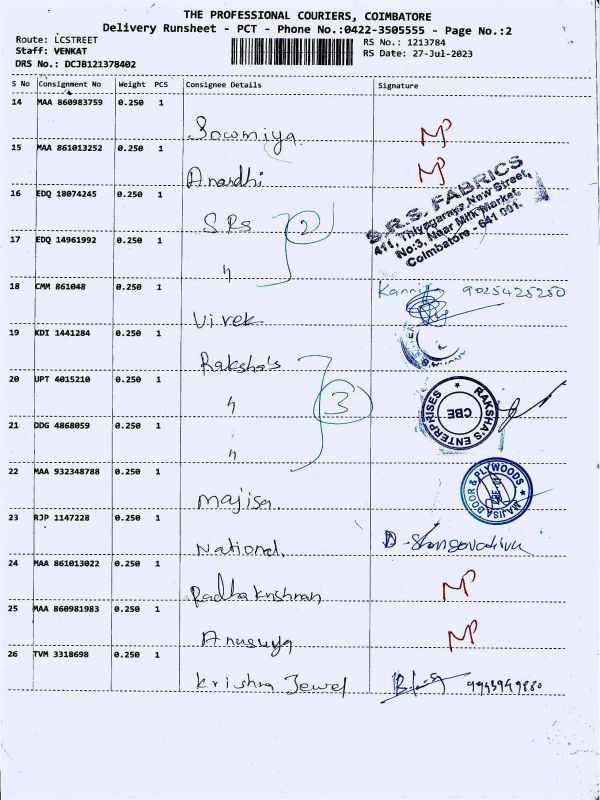 THE PROFESSIONAL COURIERS, COIMBATORE
Delivery Runsheet - PCT - Phone No.:0422-3505555 - Page No.:2
Route: LCSTREET
RS No.: 1213784
Staff: VENKAT
RS Date: 27-Jul-2023
DRS No.: DCJB121378402
S No Consignment No Weight PCS Consignee Details Signature
14 MAA 860983759 0.250 1
Sowmiya. NP
15 MAA 861013252 0.250 1
Anandhi NP
16 EDQ 18074245 0.250 1
SRS 2
S.R.S. FABRICS
411, Thiyagaraya New Street,
No:3, Near Milk Market,
Coimbatore - 641 001.
17 EDQ 14961992 0.250 1
"
18 CMM 861048 0.250 1
Vivek 9025425250
19 KDI 1441284 0.250 1
Raksha's
20 UPT 4015210 0.250 1
" 3
RAKSHA'S ENTERPRISES
CBE
21 DDG 4868059 0.250 1
"
22 MAA 932348788 0.250 1
Majisa.
MAJISA DOOR & PLYWOODS
23 RJP 1147228 0.250 1
National.
24 MAA 861013022 0.250 1
Radhakrishnan NP
25 MAA 860981983 0.250 1
Anusuya NP
26 TVM 3318698 0.250 1
Krishna Jewel 9943949880